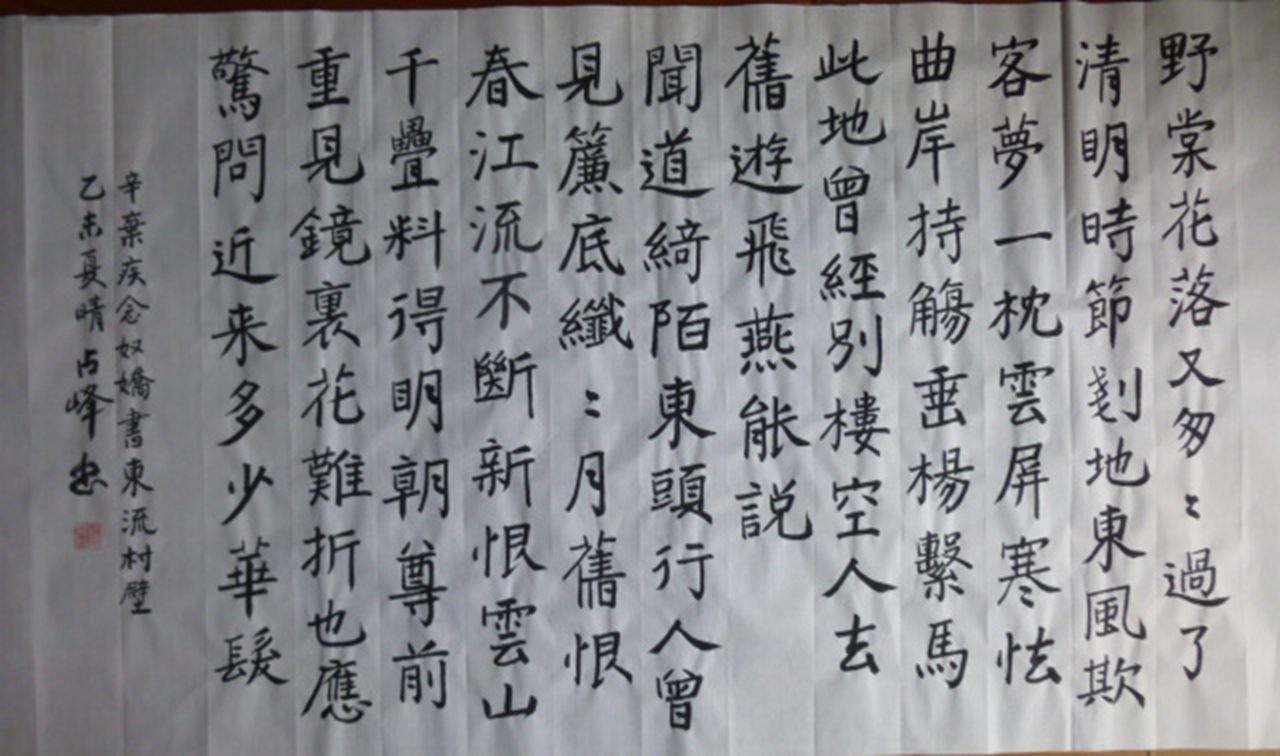 野棠花落又匆〻過了
清明時節剗地東風欺
客夢一枕雲屏寒怯
曲岸持觴垂楊繫馬
此地曾經別樓空人去
舊遊飛燕能說
聞道綺陌東頭行人曾
見簾底纖〻月舊恨
春江流不斷新恨雲山
千疊料得明朝尊前
重見鏡裏花難折也應
驚問近来多少華髮
辛棄疾念奴嬌書東流村壁
乙未夏晴占峰書